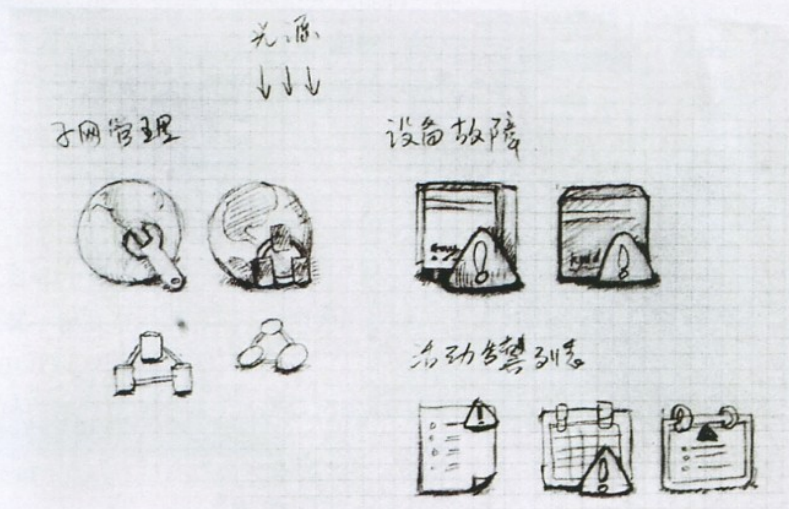 光源
子网管理
设备故障
活动告警列表